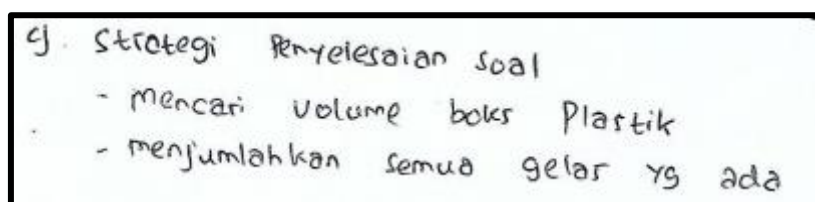 c). Strategi Penyelesaian soal
- mencari volume boks Plastik
- menjumlahkan semua gelas yg ada